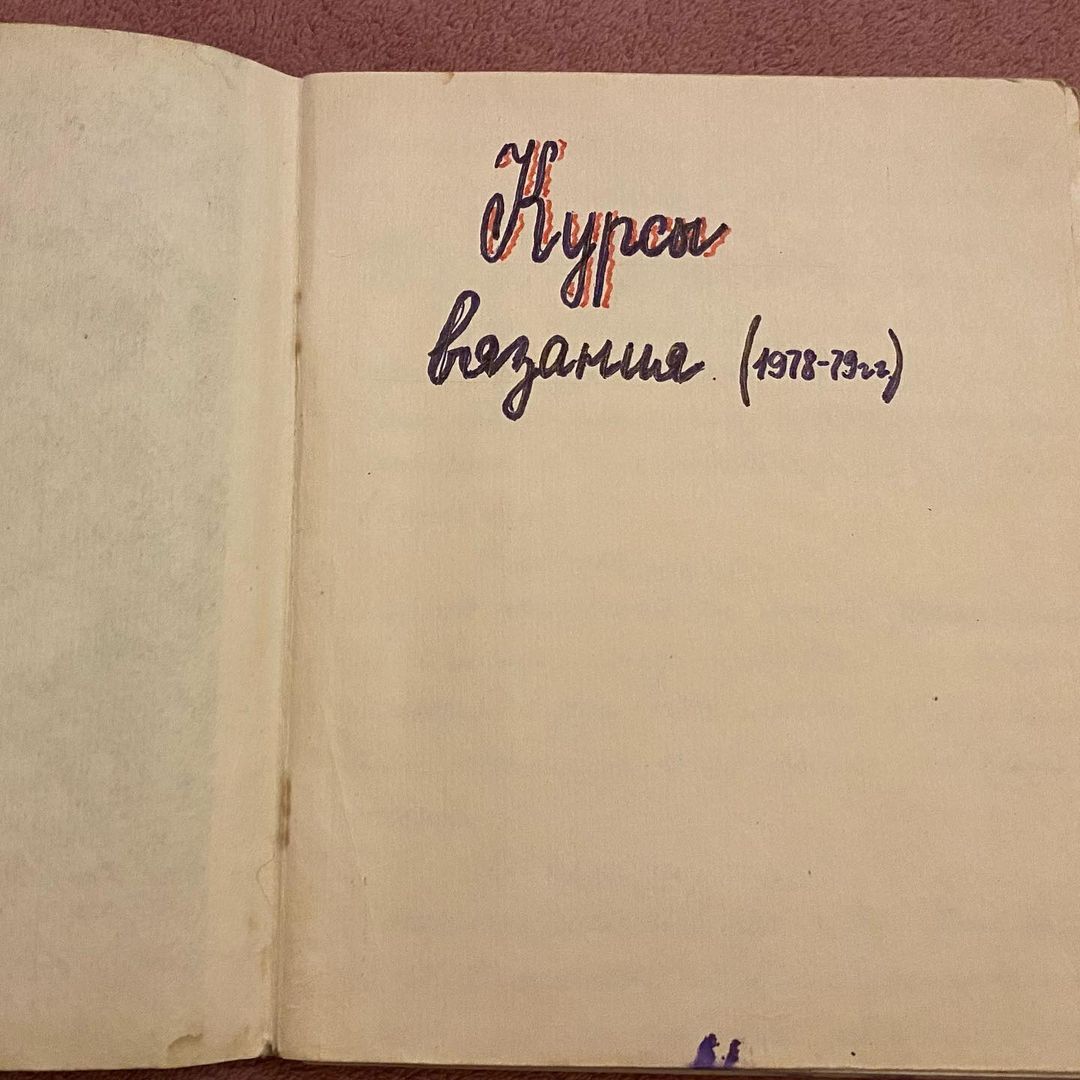 Курсы
вязания (1978-79гг.)